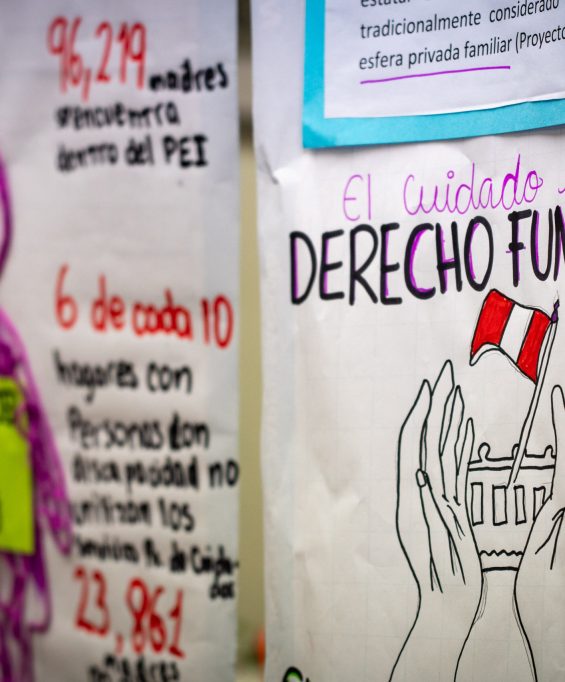 96,219 madres
se encuentra
dentro del PEI
6 de cada 10
hogares con
Personas con
discapacidad no
utilizan los
servicios
23,861
estatal
tradicionalmente considerado
esfera privada familiar (Proyecto
El cuidado
DERECHO FUN